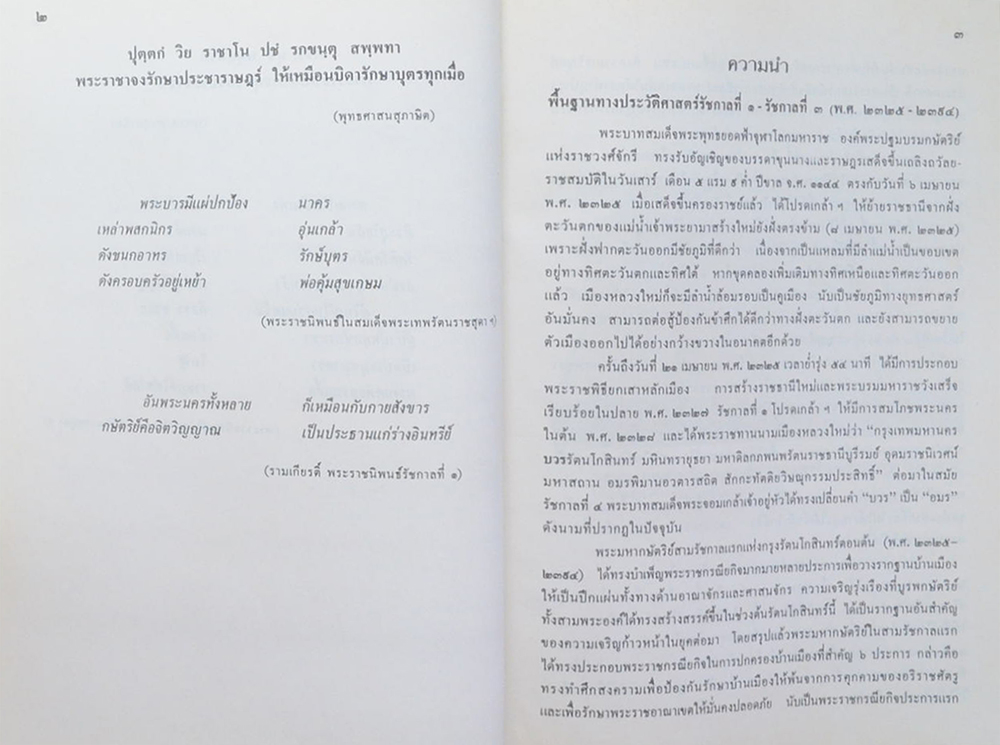 ๒
ปุตฺตกํ วิย ราชาโน ปชํ รกฺขนฺตุ สพฺพทา
พระราชาจงรักษาประชาราษฎร์ ให้เหมือนบิดารักษาบุตรทุกเมื่อ
(พุทธศาสนสุภาษิต)
พระบารมีแผ่ปกป้อง นาคร
เหล่าพสกนิกร อุ่นเกล้า
ดังชนกอาทร รักษ์บุตร
ดังครอบครัวอยู่เหย้า พ่อคุ้มสุขเกษม
(พระราชนิพนธ์ในสมเด็จพระเทพรัตนราชสุดา ฯ)
อันพระนครทั้งหลาย ก็เหมือนกับกายสังขาร
กษัตริย์คือจิตวิญญาณ เป็นประธานแก่ร่างอินทรีย์
(รามเกียรติ์ พระราชนิพนธ์รัชกาลที่ ๑)
๓
ความนำ
พื้นฐานทางประวัติศาสตร์รัชกาลที่ ๑ - รัชกาลที่ ๓ (พ.ศ. ๒๓๒๕ - ๒๓๙๔)
พระบาทสมเด็จพระพุทธยอดฟ้าจุฬาโลกมหาราช องค์พระปฐมบรมกษัตริย์
แห่งราชวงศ์จักรี ทรงรับอัญเชิญของบรรดาขุนนางและราษฎรเสด็จขึ้นเถลิงถวัลย-
ราชสมบัติในวันเสาร์ เดือน ๕ แรม ๙ ค่ำ ปีขาล จ.ศ. ๑๑๔๔ ตรงกับวันที่ ๖ เมษายน
พ.ศ. ๒๓๒๕ เมื่อเสด็จขึ้นครองราชย์แล้ว ได้โปรดเกล้า ฯ ให้ย้ายราชธานีจากฝั่ง
ตะวันตกของแม่น้ำเจ้าพระยามาสร้างใหม่ยังฝั่งตรงข้าม (๘ เมษายน พ.ศ. ๒๓๒๕)
เพราะฝั่งฟากตะวันออกมีชัยภูมิที่ดีกว่า เนื่องจากเป็นแหลมที่มีลำแม่น้ำเป็นขอบเขต
อยู่ทางทิศตะวันตกและทิศใต้ หากขุดคลองเพิ่มเติมทางทิศเหนือและทิศตะวันออก
แล้ว เมืองหลวงใหม่ก็จะมีลำน้ำล้อมรอบเป็นคูเมือง นับเป็นชัยภูมิทางยุทธศาสตร์
อันมั่นคง สามารถต่อสู้ป้องกันข้าศึกได้ดีกว่าทางฝั่งตะวันตก และยังสามารถขยาย
ตัวเมืองออกไปได้อย่างกว้างขวางในอนาคตอีกด้วย
ครั้นถึงวันที่ ๒๑ เมษายน พ.ศ. ๒๓๒๕ เวลาย่ำรุ่ง ๕๔ นาที ได้มีการประกอบ
พระราชพิธียกเสาหลักเมือง การสร้างราชธานีใหม่และพระบรมมหาราชวังเสร็จ
เรียบร้อยในปลาย พ.ศ. ๒๓๒๗ รัชกาลที่ ๑ โปรดเกล้า ฯ ให้มีการสมโภชพระนคร
ในต้น พ.ศ. ๒๓๒๘ และได้พระราชทานนามเมืองหลวงใหม่ว่า "กรุงเทพมหานคร
บวรรัตนโกสินทร์ มหินทรายุธยา มหาดิลกภพนพรัตนราชธานีบูรีรมย์ อุดมราชนิเวศน์
มหาสถาน อมรพิมานอวตารสถิต สักกะทัตติยวิษณุกรรมประสิทธิ์" ต่อมาในสมัย
รัชกาลที่ ๔ พระบาทสมเด็จพระจอมเกล้าเจ้าอยู่หัวได้ทรงเปลี่ยนคำ "บวร" เป็น "อมร"
ดังนามที่ปรากฏในปัจจุบัน
พระมหากษัตริย์สามรัชกาลแรกแห่งกรุงรัตนโกสินทร์ตอนต้น (พ.ศ. ๒๓๒๕-
๒๓๙๔) ได้ทรงบำเพ็ญพระราชกรณียกิจมากมายหลายประการเพื่อวางรากฐานบ้านเมือง
ให้เป็นปึกแผ่นทั้งทางด้านอาณาจักรและศาสนจักร ความเจริญรุ่งเรืองที่บูรพกษัตริย์
ทั้งสามพระองค์ได้ทรงสร้างสรรค์ขึ้นในช่วงต้นรัตนโกสินทร์นี้ ได้เป็นรากฐานอันสำคัญ
ของความเจริญก้าวหน้าในยุคต่อมา โดยสรุปแล้วพระมหากษัตริย์ในสามรัชกาลแรก
ได้ทรงประกอบพระราชกรณียกิจในการปกครองบ้านเมืองที่สำคัญ ๖ ประการ กล่าวคือ
ทรงทำศึกสงครามเพื่อป้องกันรักษาบ้านเมืองให้พ้นจากการคุกคามของอริราชศัตรู
และเพื่อรักษาพระราชอาณาเขตให้มั่นคงปลอดภัย นับเป็นพระราชกรณียกิจประการแรก